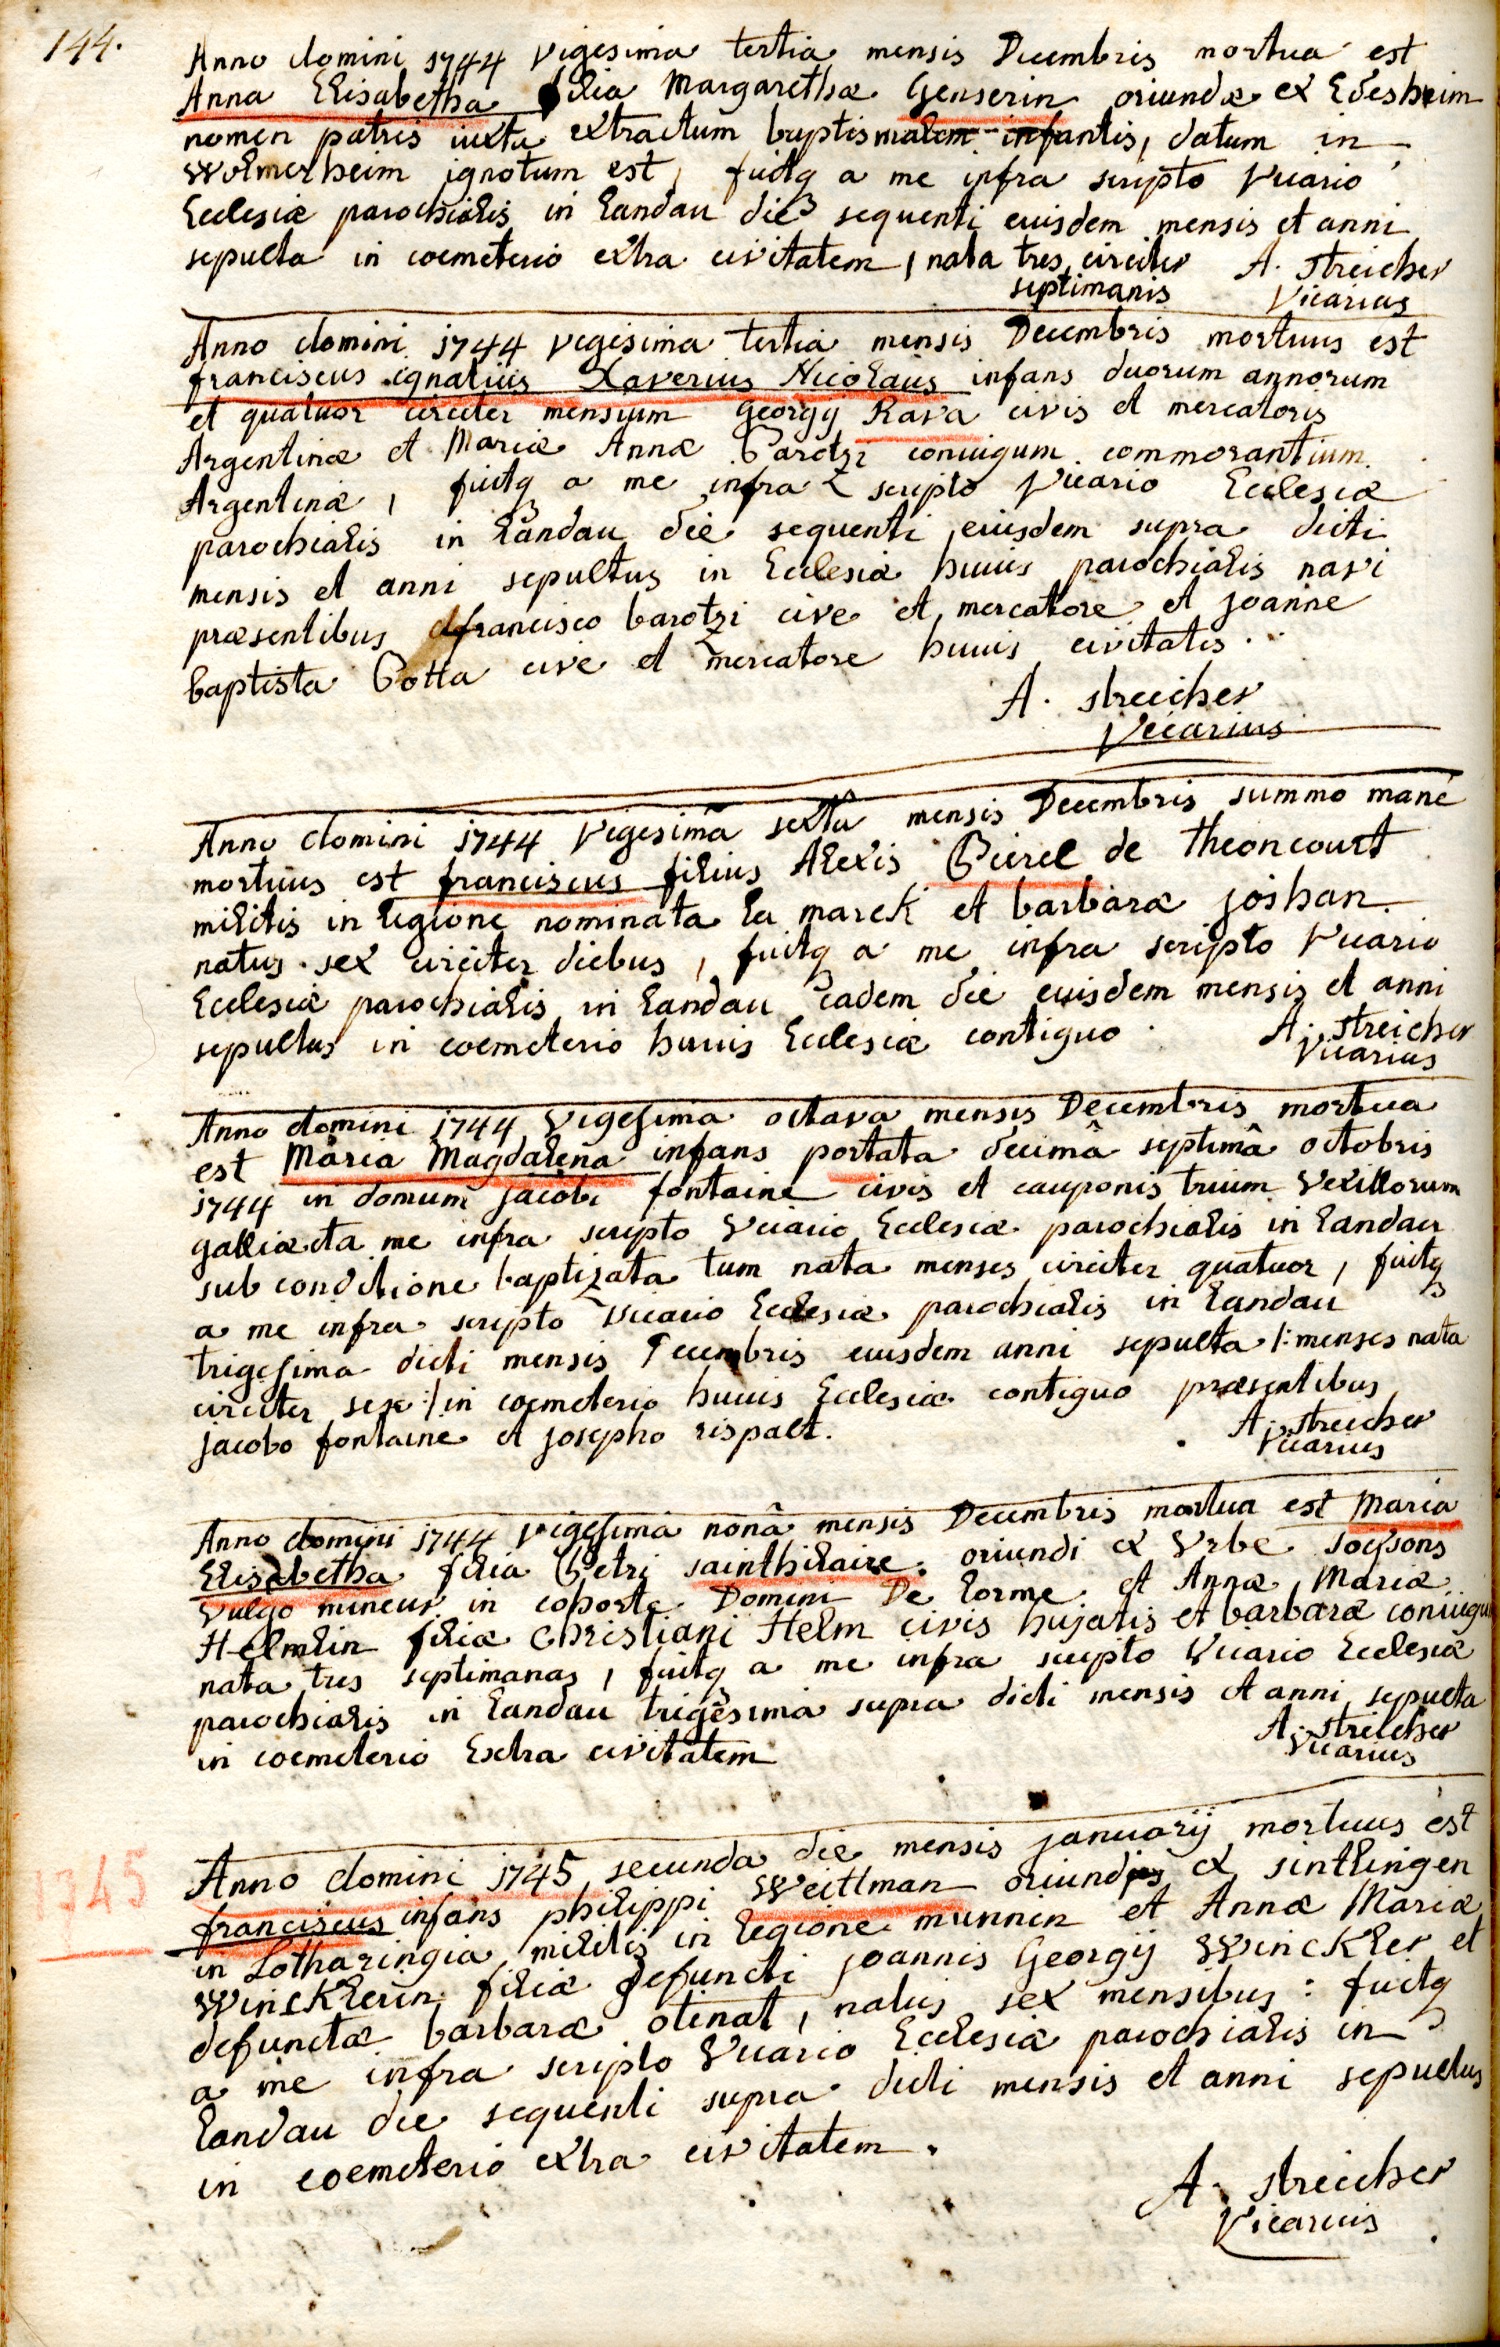 144.
Anno domini 1744 vigesima tertia mensis Decembris mortua est
Anna Elisabetha filia Margarethæ Genserin oriundæ ex Edesheim
nomen patris iuxta extractum baptismalem infantis, datum in
Wolmerheim ignotum est, fuitq a me infra scripto Vicario
Ecclesiæ parochialis in Landau die sequenti eiusdem mensis et anni
sepulta in coemeterio extra civitatem, nata tres circiter A. Streicher
septimanis Vicarius
Anno domini 1744 vigesima tertia mensis Decembris mortuus est
franciscus ignatius Xaverius Nicolaus infans duorum annorum
et quatuor circiter mensium Georgij Rava civis et mercatoris
Argentinæ et Mariæ Annæ Barotzi coniugum commorantium
Argentinæ, fuitq a me infra scripto Vicario Ecclesiæ
parochialis in Landau die sequenti eiusdem supra dicti
mensis et anni sepultus in Ecclesiæ huius parochialis navi
præsentibus francisco barotzi cive et mercatore et joanne
baptista Botta cive et mercatore huius civitatis.
A. Streicher
Vicarius
Anno domini 1744 Vigesimâ sextâ mensis Decembris summo mane
mortuus est franciscus filius Alexis Pierel de Theoncourt
militis in legione nominata La marck et barbaræ joshan
natus sex circiter diebus, fuitq a me infra scripto Vicario
Ecclesiæ parochialis in Landau eadem die eiusdem mensis et anni
sepultus in coemeterio huius Ecclesiæ contiguo. A. Streicher
Vicarius
Anno domini 1744 Vigesima octava mensis Decembris mortua
est Maria Magdalena infans portata decimâ septimâ octobris
1744 in domum jacobi fontaine civis et cauponis trium Vexillorum
galliæ et a me infra scripto Vicario Ecclesiæ parochialis in Landau
sub conditione baptizata tum nata menses circiter quatuor, fuitq
a me infra scripto Vicario Ecclesiæ parochialis in Landau
trigesima dicti mensis Decembris eiusdem anni sepulta /: menses nata
circiter sex :/ in coemeterio huius Ecclesiæ contiguo præsentibus
jacobo fontaine et josepho rispalt. A. Streicher
Vicarius
Anno domini 1744 vigesima nonâ mensis Decembris mortua est Maria
Elisabetha filia Petri sainthilaire oriundi ex Vrbe Soissons
Vulgo mineur in cohorte Domini De Lorme et Annæ Mariæ
Helmlin filiæ Christiani Helm civis hujatis et barbaræ coniugum
nata tres septimanas, fuitq a me infra scripto Vicario Ecclesiæ
parochialis in Landau trigesima supra dicti mensis et anni sepulta
in coemeterio Extra civitatem A. Streicher
Vicarius
1745
Anno domini 1745 secunda die mensis januarij mortuus est
franciscus infans philippi Weittman oriundi ex sintlingen
in Lotharingia militis in legione munnin et Annæ Mariæ
Wincklerin filiæ defuncti joannis Georgij Winckler et
defunctæ barbaræ otenat, natus sex mensibus: fuitq
a me infra scripto Vicario Ecclesiæ parochialis in
Landau die sequenti supra dicti mensis et anni sepultus
in coemeterio extra civitatem.
A. Streicher
Vicarius